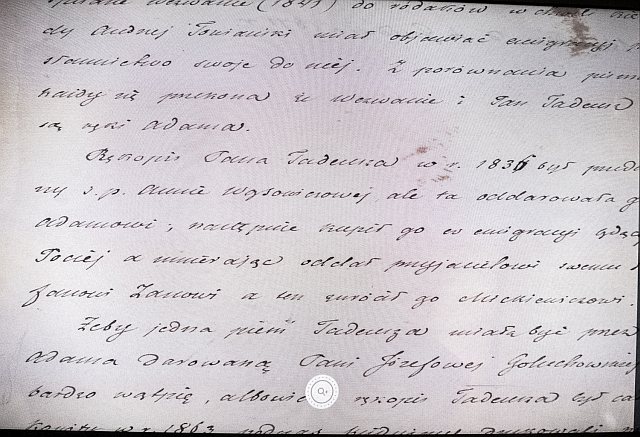 wezwanie (1841) do rodaków w chwili
dy Andrzej Towiański miał objawiać emigracyi
słannictwo swoje do niej. Z porównania pism
każdy się przekona że Wezwanie i Pan Tadeusz
są ręki Adama.
Rękopis Pana Tadeusza w r. 1836 był
ny ś. p. Annie Wysowiczowej ale ta oddarowała
Adamowi; następnie kupił go w emigracyi
Pociej a umierając oddał przyjacielowi swemu
fanowi Zanowi a ten zwrócił go Mickiewiczowi.
Żeby jedna pieśń Tadeusza miała być przez
Adama darowaną Pani Józefowej Gołuchowskiej
bardzo wątpię, albowiem rękopis Tadeusza był
w r. 1863